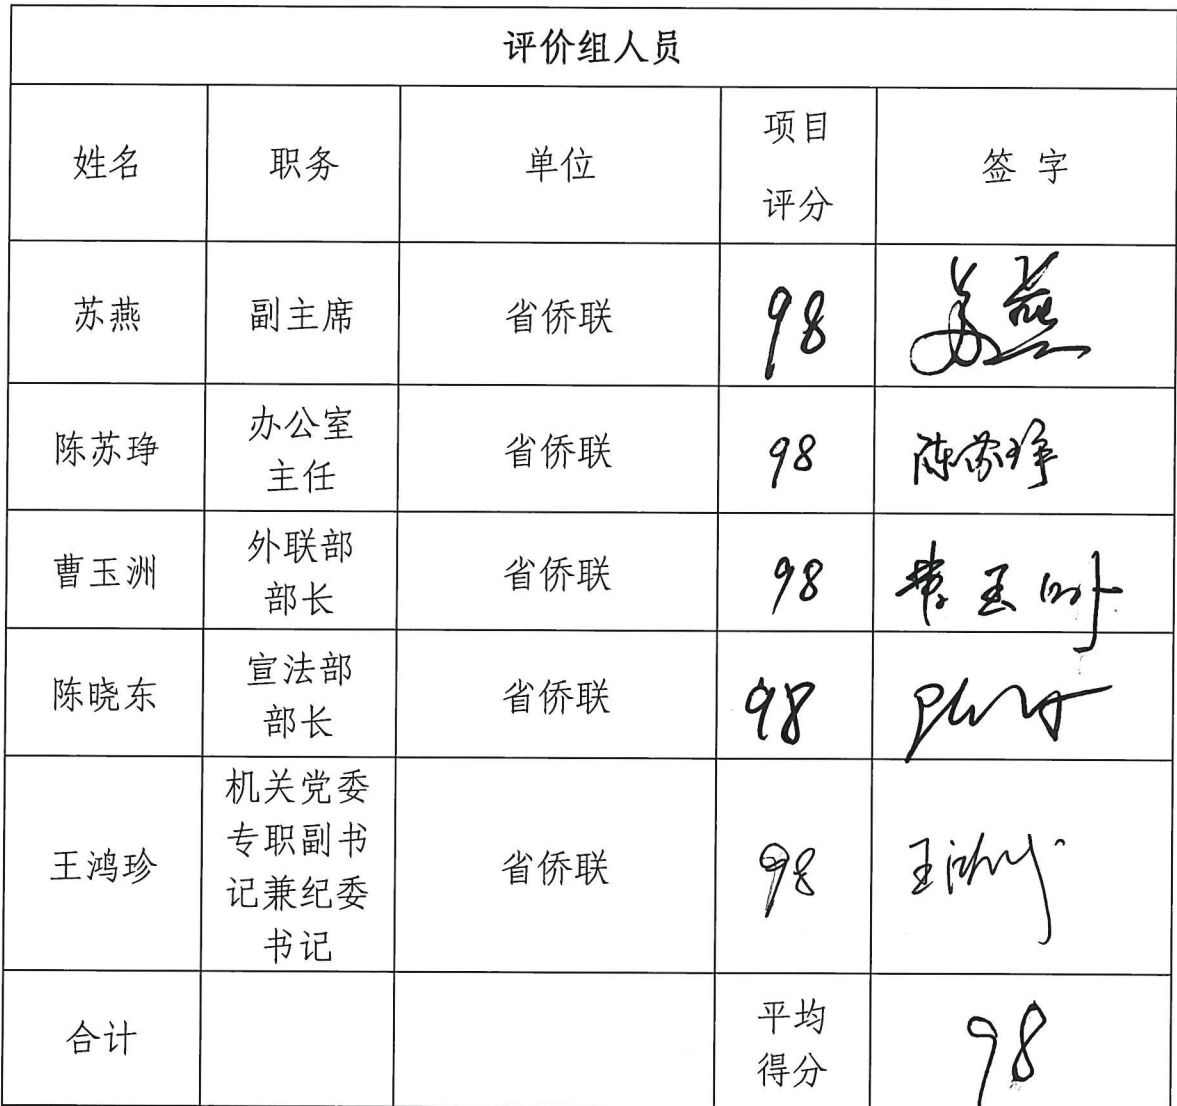 评价组人员
姓名 职务 单位 项目评分 签 字
苏燕 副主席 省侨联 98 苏燕
陈苏琤 办公室主任 省侨联 98 陈苏琤
曹玉洲 外联部部长 省侨联 98 曹玉洲
陈晓东 宣法部部长 省侨联 98
王鸿珍 机关党委专职副书记兼纪委书记 省侨联 98 王鸿珍
合计 平均得分 98